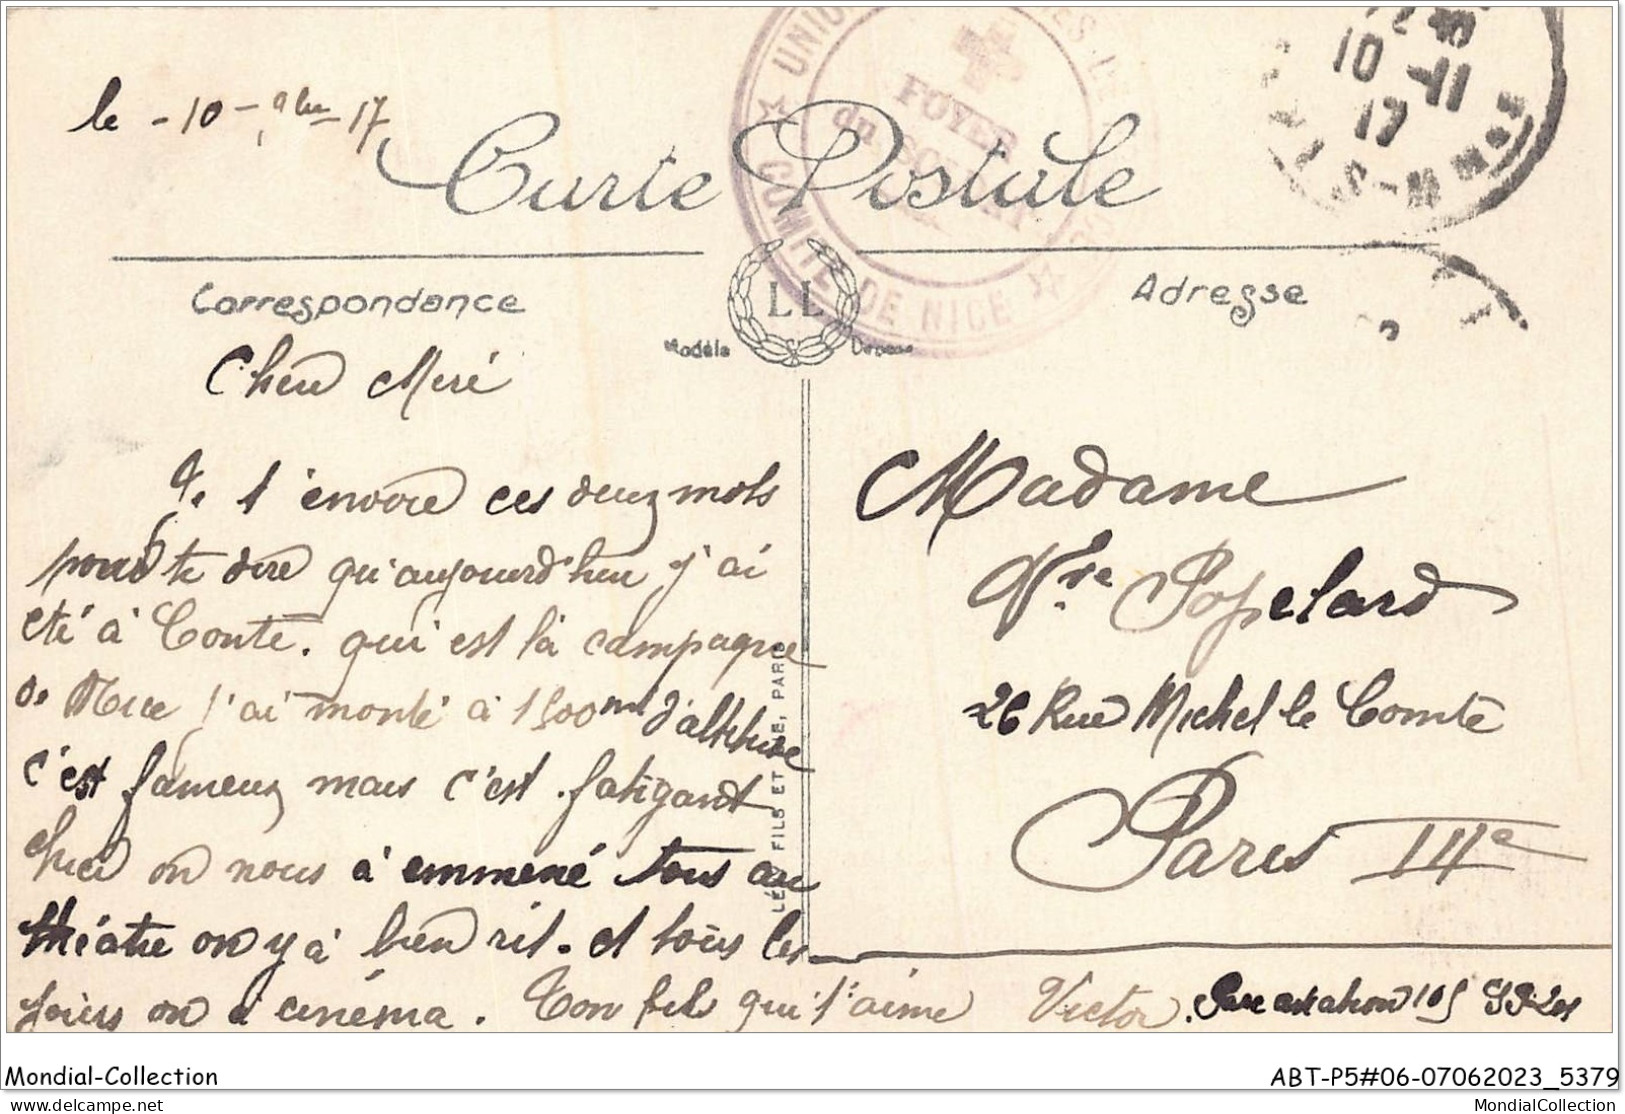 le - 10 - 9bre 17
UNION
FOYER
du SOLDAT
COMITÉ DE NICE
10 -11
17
Carte Postale
Correspondance
Adresse
LL
Modèle
Cher Meré
Je t'envoie ces deux mots
pour te dire qu'aujourd'hui j'ai
été à Conte. qui est là campagne
de Nice j'ai monté à 1500m d'altitude
c'est fameux mais c'est fatigant
hier on nous à emmené tous au
théatre on y à bien rit. et tous les
soirs on à cinéma. Ton fils qui t'aime Victor.
LÉVY FILS ET CIE, PARIS
Madame
Vve Popelard
26 Rue Michel le Comte
Paris IIIe
Mondial-Collection
ABT-P5#06-07062023_5379
delcampe.net
MondialCollection